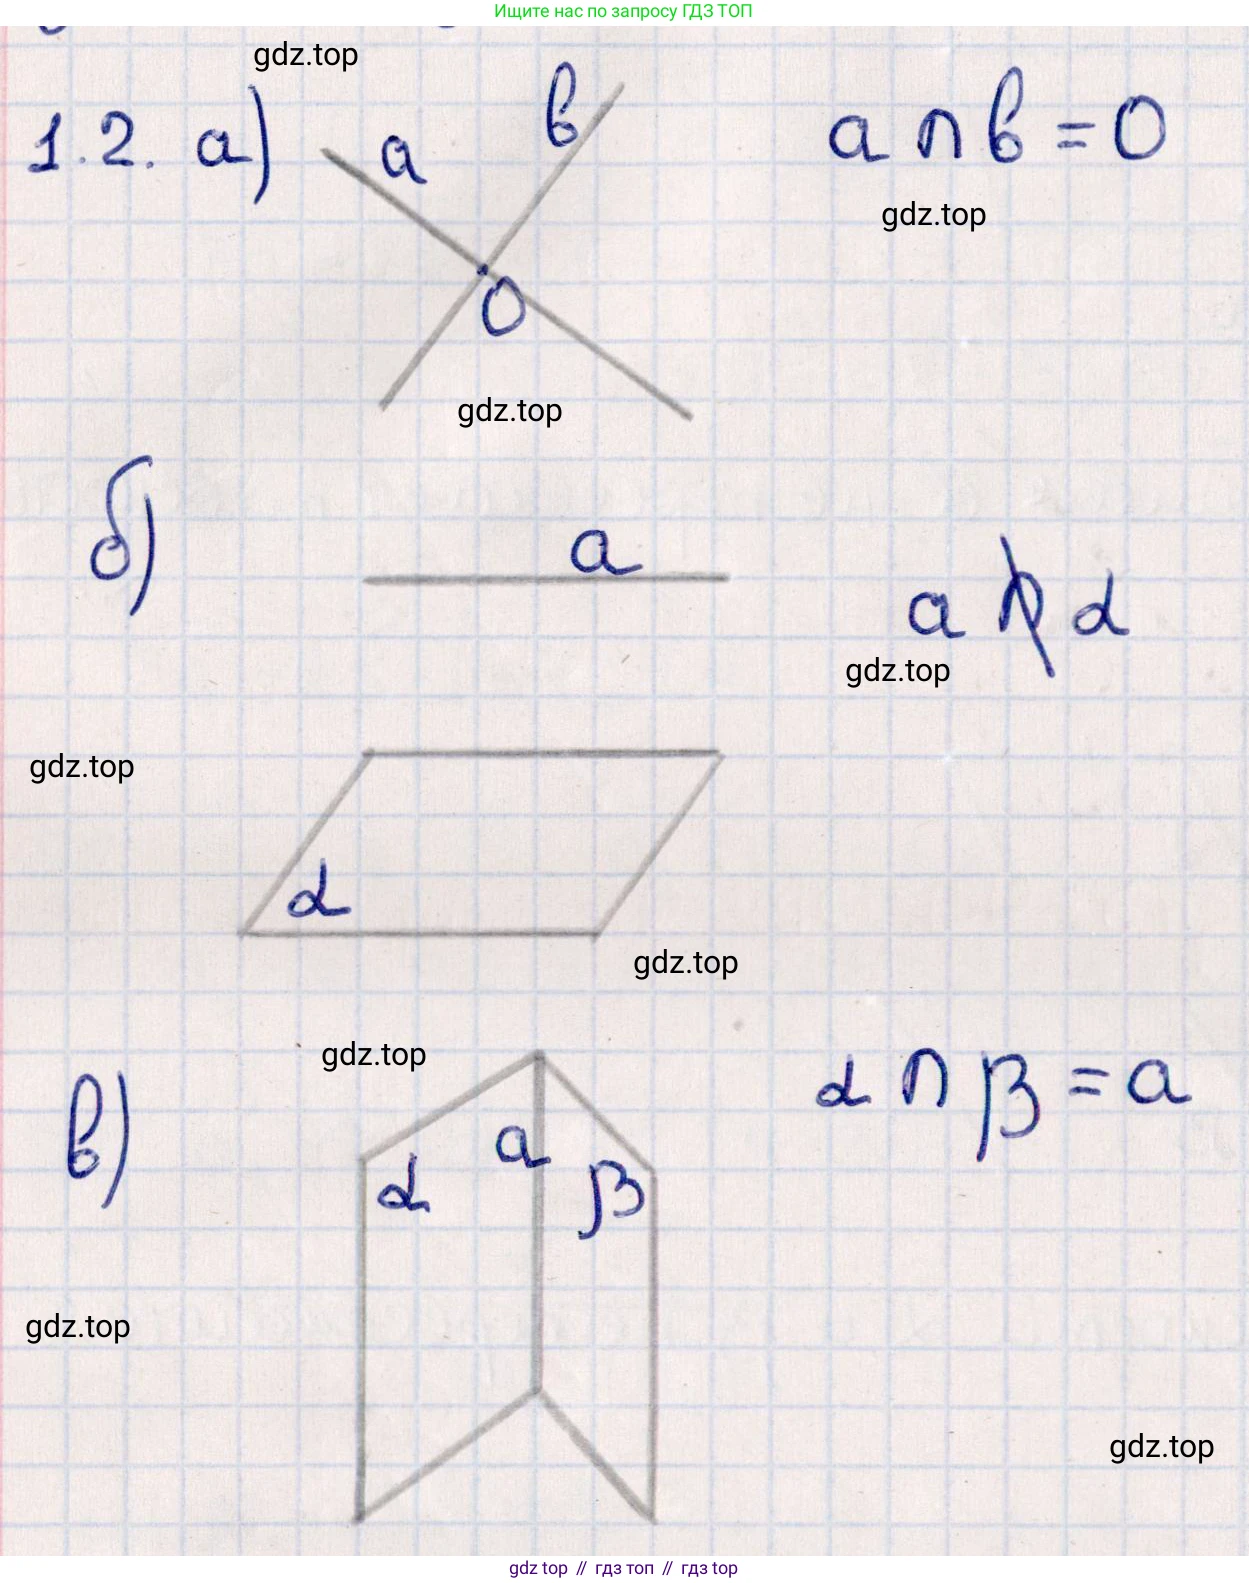 Ищите нас по запросу ГДЗ ТОП
gdz.top
1.2. а) a b a ∩ b = O
gdz.top
O
gdz.top
б) a
a ∩̸ α
gdz.top
gdz.top
α
gdz.top
gdz.top
в) α ∩ β = a
a
α β
gdz.top
gdz.top
gdz top // гдз топ // gdz top